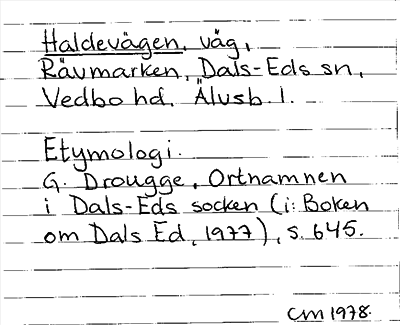 Haldevägen, väg,
Rävmarken, Dals-Eds sn,
Vedbo hd. Älvsb. l.
Etymologi.
G. Drougge, Ortnamnen
i Dals-Eds socken (i: Boken
om Dals Ed, 1977), s. 645.
CM 1978.